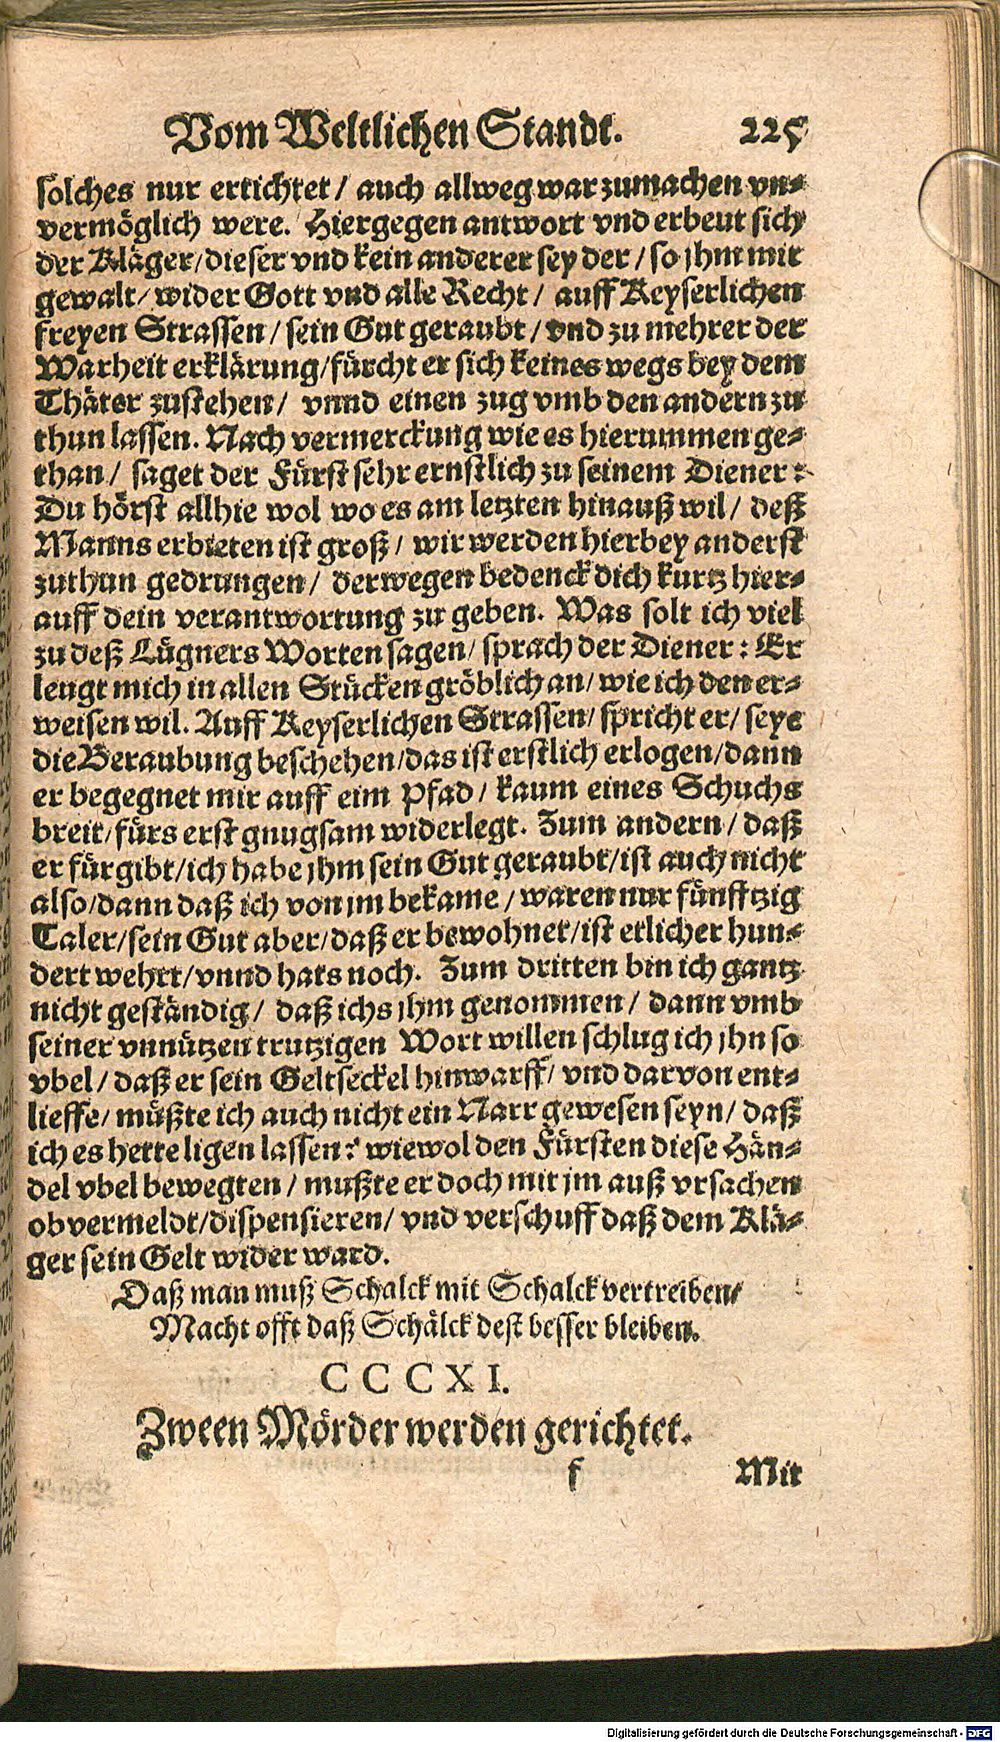 Vom Weltlichen Standt. 225
solches nur ertichtet / auch allweg war zumachen vn-
vermöglich were. Hiergegen antwort vnd erbeut sich
der Kläger / dieser vnd kein anderer sey der / so jhm mit
gewalt / wider Gott vnd alle Recht / auff Keyserlichen
freyen Strassen / sein Gut geraubt / vnd zu mehrer der
Warheit erklärung / fürcht er sich keines wegs bey dem
Thäter zustehen / vnnd einen zug vmb den andern zu
thun lassen. Nach vermerckung wie es hierummen ge-
than / saget der Fürst sehr ernstlich zu seinem Diener:
Du hörst allhie wol wo es am letzten hinauß wil / deß
Manns erbieten ist groß / wir werden hierbey anderst
zuthun gedrungen / derwegen bedenck dich kurtz hier-
auff dein verantwortung zu geben. Was solt ich viel
zu deß Lügners Worten sagen / sprach der Diener: Er
leugt mich in allen Stücken gröblich an / wie ich den er-
weisen wil. Auff Keyserlichen Strassen / spricht er / seye
die Beraubung beschehen / das ist erstlich erlogen / dann
er begegnet mir auff eim Pfad / kaum eines Schuchs
breit / fürs erst gnugsam widerlegt. Zum andern / daß
er fürgibt / ich habe jhm sein Gut geraubt / ist auch nicht
also / dann daß ich von jm bekame / waren nur fünfftzig
Taler / sein Gut aber / daß er bewohnet / ist etlicher hun-
dert wehrt / vnnd hats noch. Zum dritten bin ich gantz
nicht geständig / daß ichs jhm genommen / dann vmb
seiner vnnützen trutzigen Wort willen schlug ich jhn so
vbel / daß er sein Geltseckel hinwarff / vnd darvon ent-
lieffe / müßte ich auch nicht ein Narr gewesen seyn / daß
ich es hette ligen lassen? wiewol den Fürsten diese Hän-
del vbel bewegten / mußte er doch mit jm auß vrsachen
obvermeldt / dispensieren / vnd verschuff daß dem Klä-
ger sein Gelt wider ward.
Daß man muß Schalck mit Schalck vertreiben /
Macht offt daß Schälck dest besser bleiben.
CCCXI.
Zween Mörder werden gerichtet.
f Mit
Digitalisierung gefördert durch die Deutsche Forschungsgemeinschaft - DFG